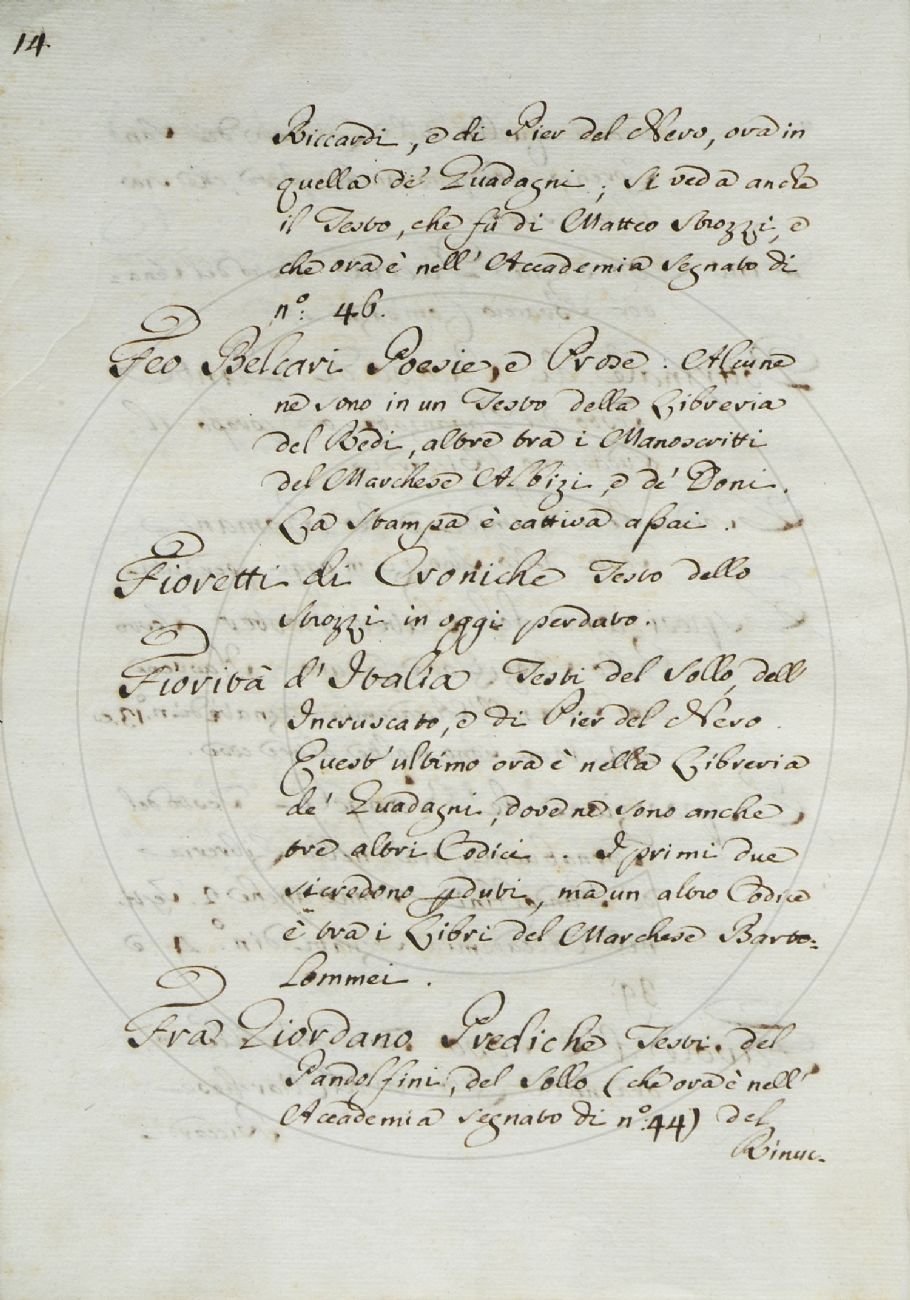 14.
Riccardi, e di Pier del Nero, ora in
quella de' Guadagni; si veda anche
il Testo, che fù di Matteo Strozzi, e
che ora è nell' Accademia segnato di
n.º: 46.
Feo Belcari Poesie, e Prose. Alcune
ne sono in un Testo della Libreria
del Redi, altre tra i Manoscritti
del Marchese Albizi, e de' Doni.
La stampa è cattiva assai.
Fioretti di Croniche Testo dello
Strozzi in oggi perduto.
Fiorità d' Italia. Testi del Sollo, dell'
Incruscato, e di Pier del Nero.
Quest' ultimo ora è nella Libreria
de' Guadagni, dove ne sono anche
tre altri Codici. I primi due
si credono pduti, ma un altro Codice
è tra i Libri del Marchese Barto=
lommei.
Fra Giordano. Prediche Testi del
Pandolfini, del Sollo (che ora è nell'
Accademia segnato di n.º 44) del
Rinuc-